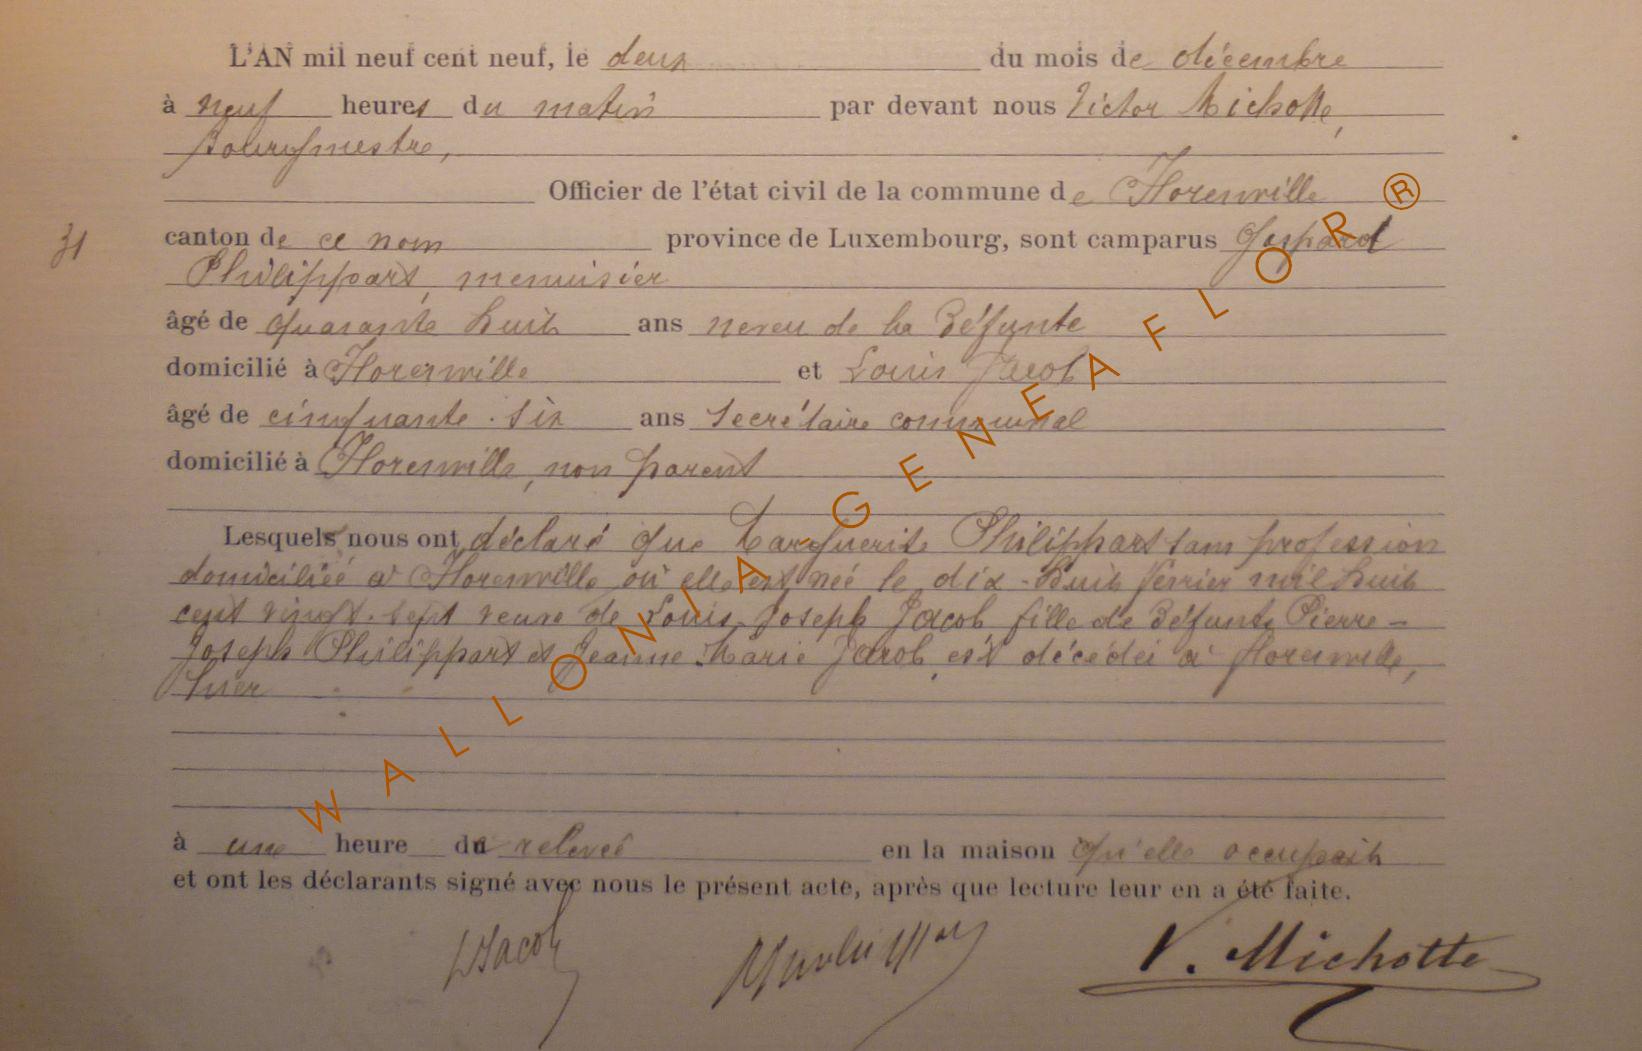 L'AN mil neuf cent neuf, le deux du mois de décembre
à neuf heures du matin par devant nous Victor Michotte,
Bourgmestre,
Officier de l'état civil de la commune de Florenville
31 canton de ce nom province de Luxembourg, sont camparus Gaspard
Philippart, menuisier
âgé de quarante huit ans neveu de la défunte
domicilié à Florenville et Louis Jacob
âgé de cinquante-six ans secrétaire communal
domicilié à Florenville, non parent
Lesquels nous ont déclaré que Marguerite Philippart sans profession
domiciliée à Florenville où elle est née le dix-huit février mil huit
cent vingt-sept veuve de Louis-Joseph Jacob fille de défunts Pierre-
Joseph Philippart et Jeanne-Marie Jacob, est décédée à Florenville,
hier
à une heure de relevée en la maison qu'elle occupait
et ont les déclarants signé avec nous le présent acte, après que lecture leur en a été faite.
LJacob V. Michotte
WALLONIA-GENEAFLOR®